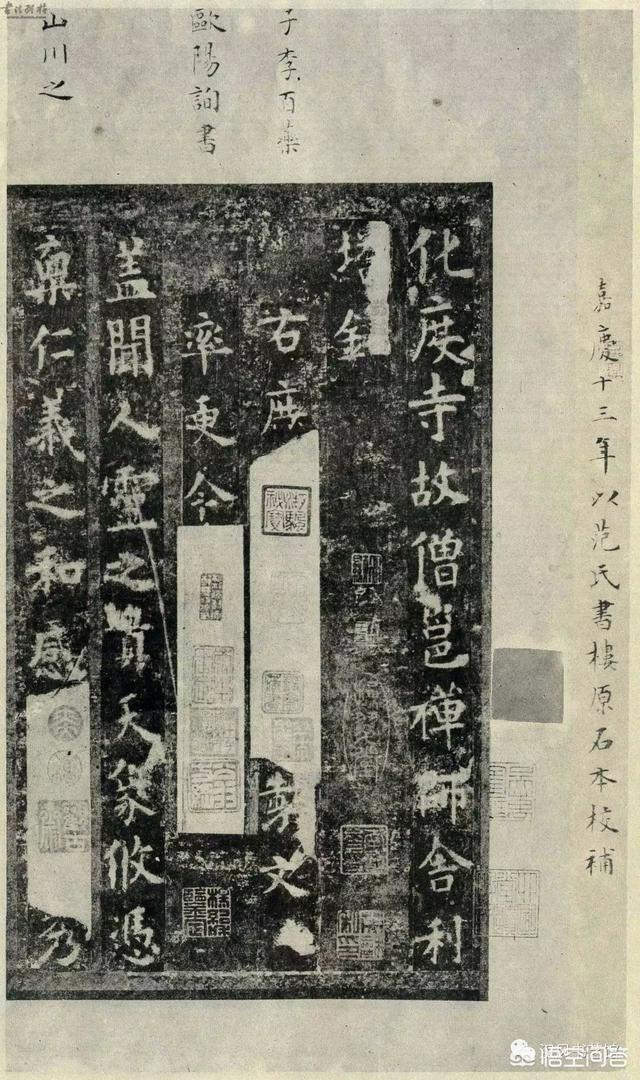 嘉慶十三年以范氏書樓原石本校補
化度寺故僧邕禪師舍利
塔銘
右庶
子李百藥
製文
率更令
歐陽詢書
盖聞人靈之貴天象攸憑
稟仁義之和感
山川之
乃
悟空问答